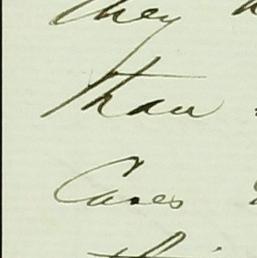 they
than
Cases